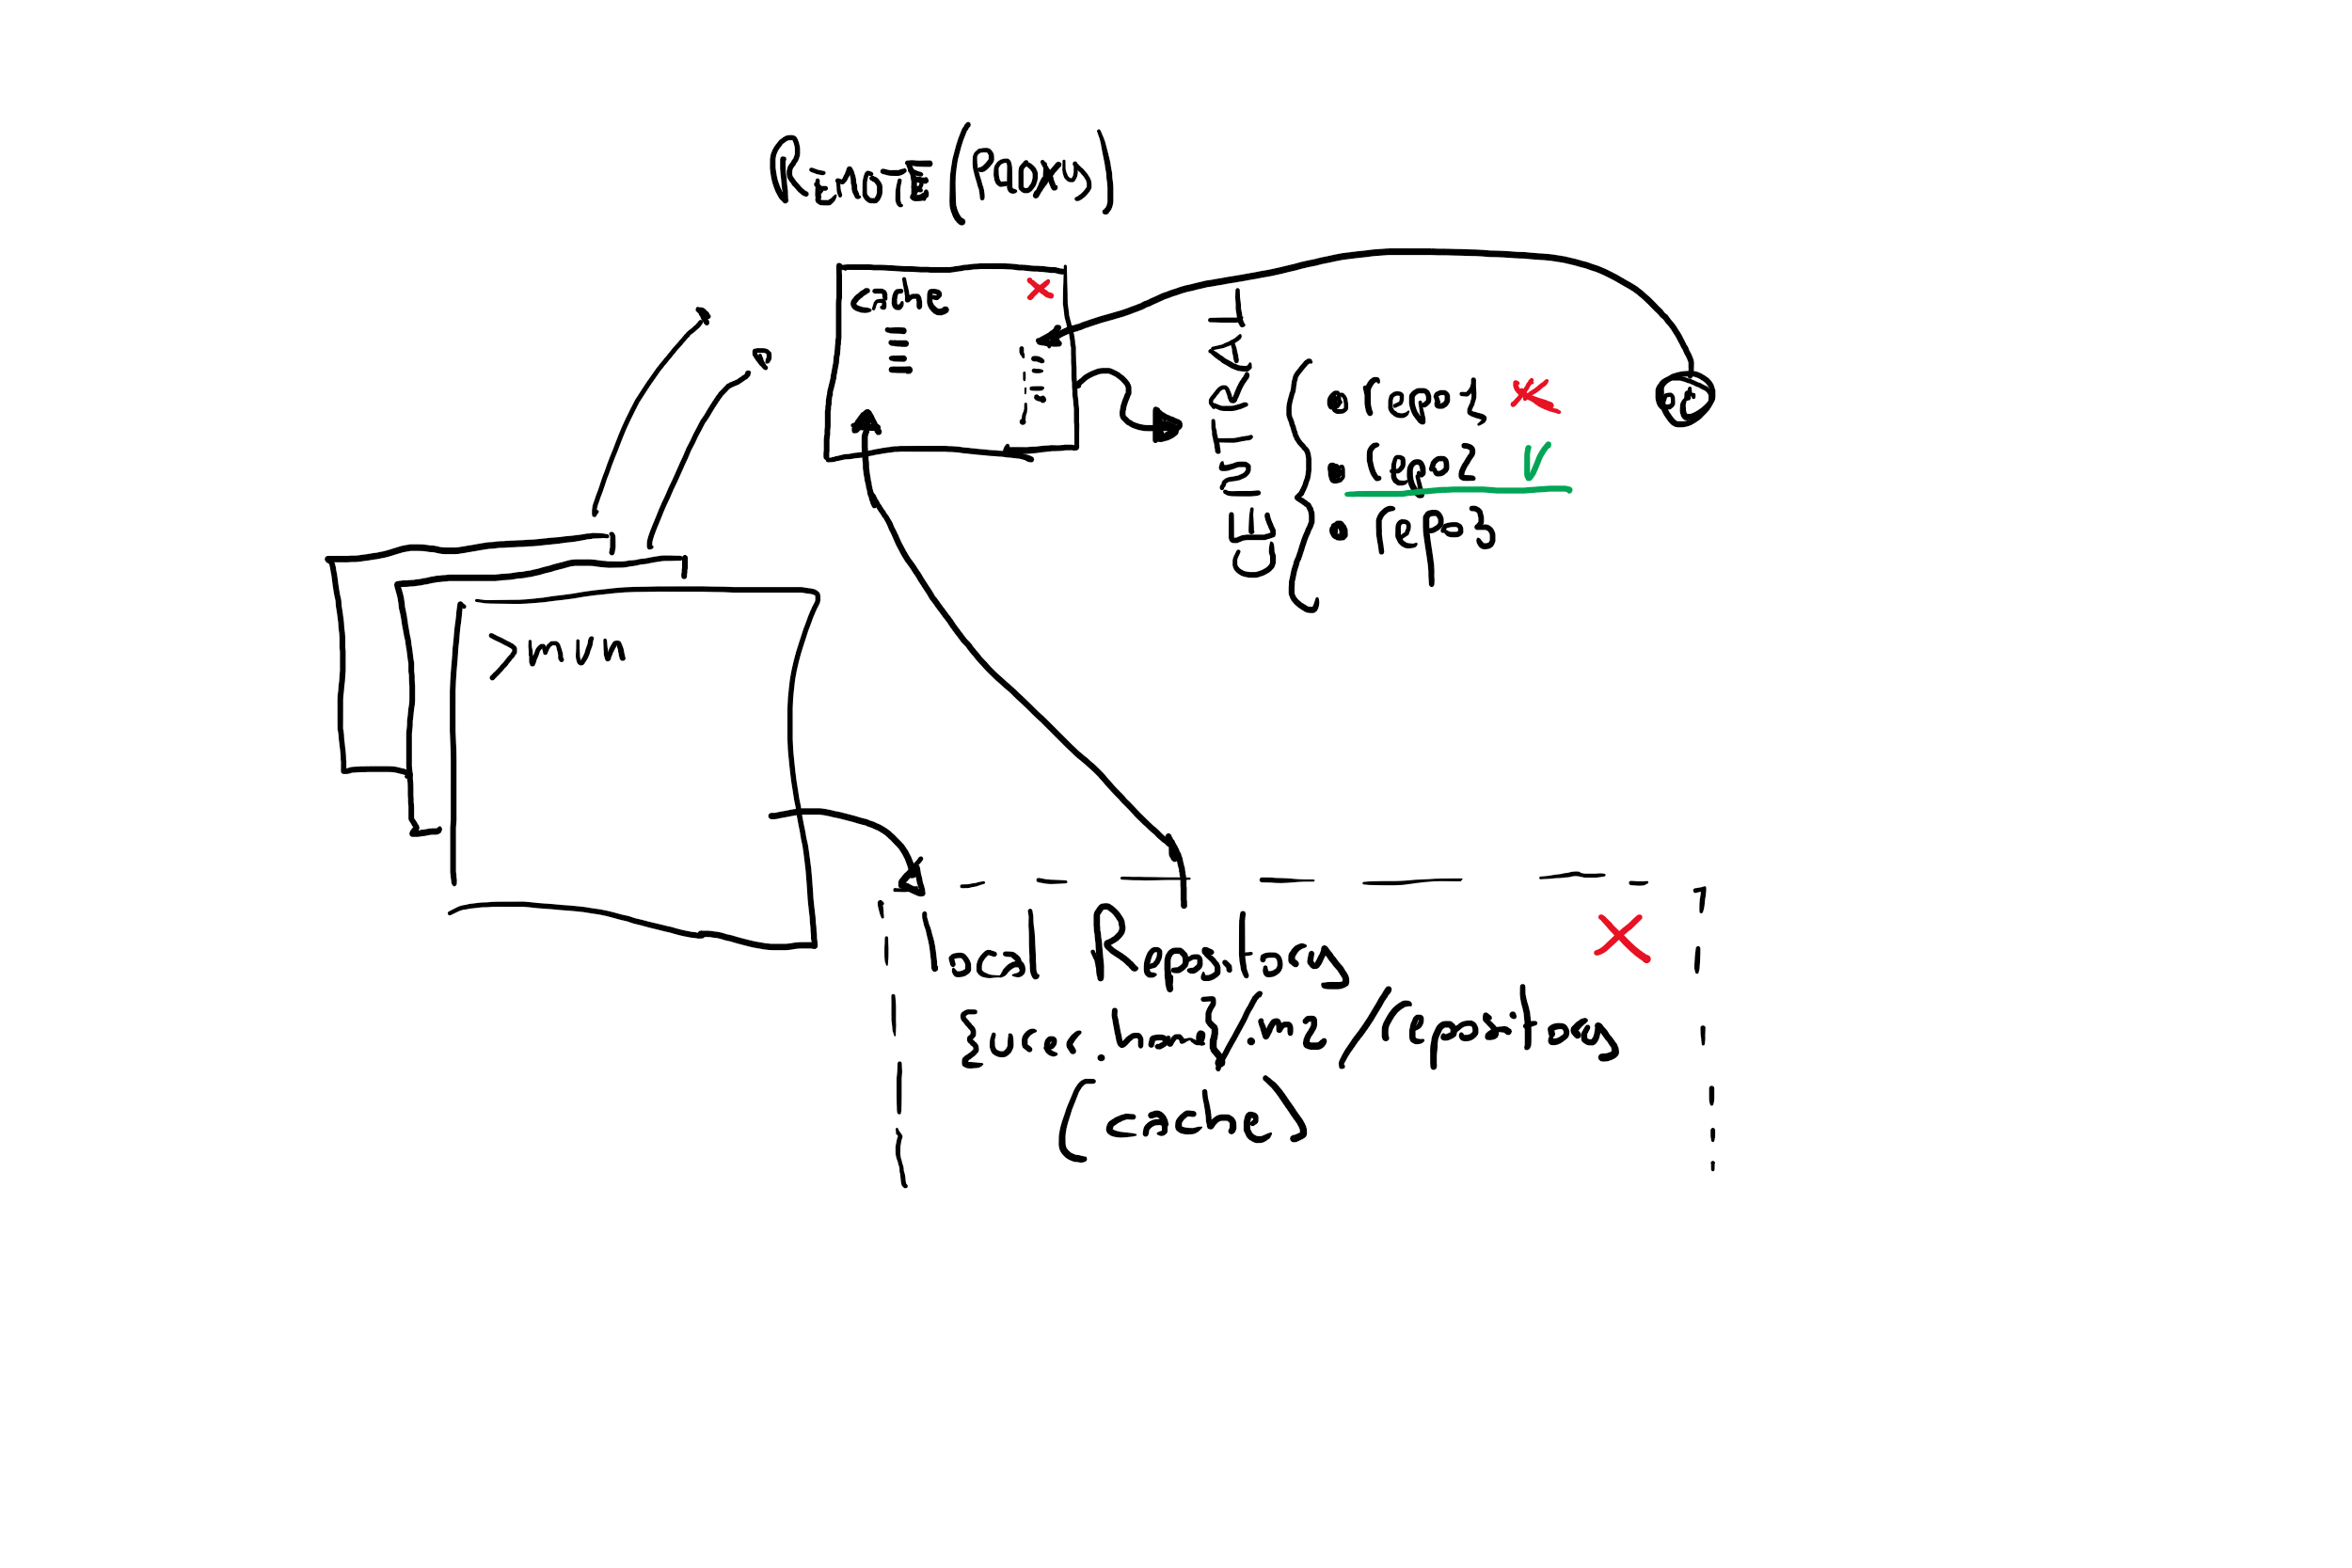 REMOTE (PROXY)
cache
CENTRAL
repo1
repo2
repo3
>mvn
local Repository
${user.home}/.m2/repository
(cache)